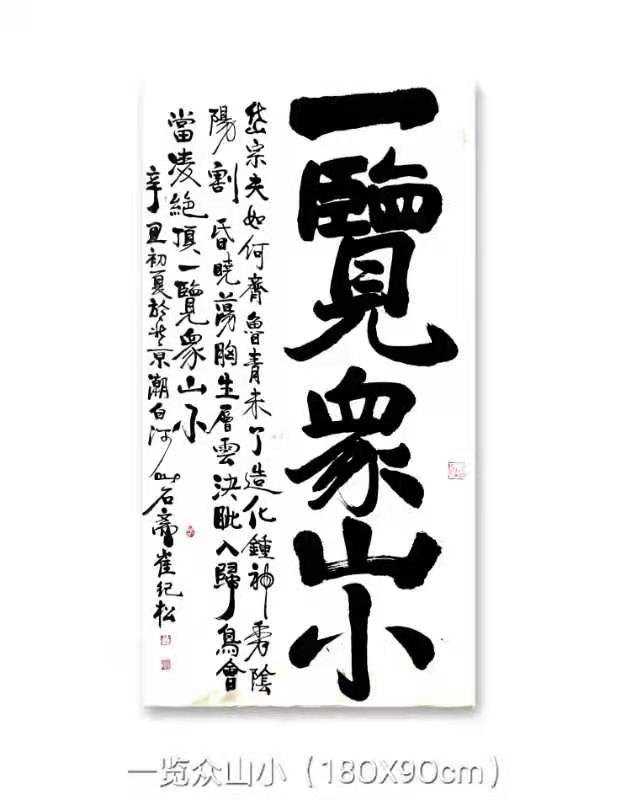 一覽衆山小
岱宗夫如何齊魯青未了造化鍾神秀陰
陽割昏曉蕩胸生層雲決眦入歸鳥會
當凌絕頂一覽衆山小
辛丑初夏於北京潮白河石齋崔紀松
一览众山小（180X90cm）